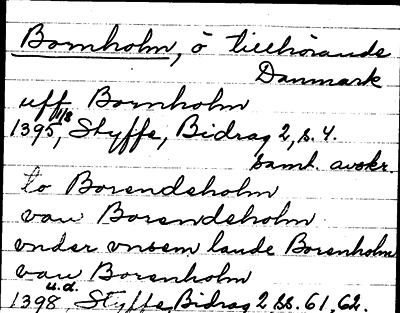 Bornholm, ö tillhörande
Danmark
uff Bornholm
1395 11/8, Styffe, Bidrag 2, s. 4.
samt. avskr.
to Borendeholm
van Borendsholm
vnder vnsem lande Borenholm
van Borenholm
1398 u.d., Styffe, Bidrag 2, ss. 61, 62.